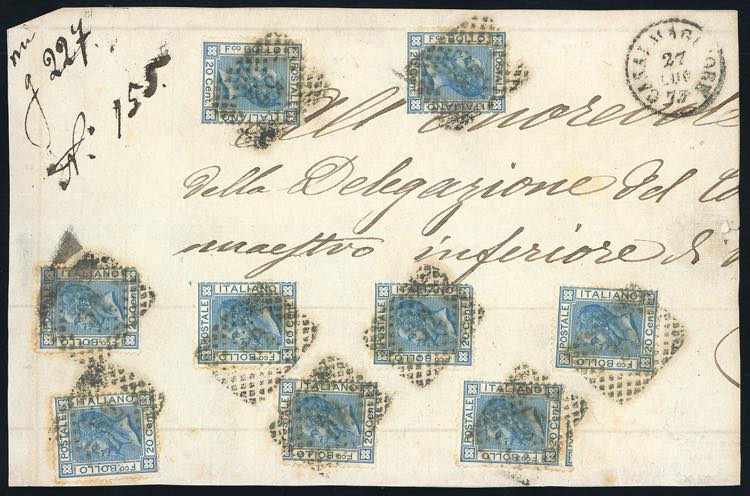 g 227.
N: 155.
CASALMAGGIORE
27
LUG
73
All' Onorevole
della Delegazione del Co
maestro inferiore di
ITALIANO
POSTALE
20 Cent.
Fco BOLLO
ITALIANO
POSTALE
20 Cent.
Fco BOLLO
ITALIANO
POSTALE
20 Cent.
Fco BOLLO
ITALIANO
POSTALE
20 Cent.
Fco BOLLO
ITALIANO
POSTALE
20 Cent.
Fco BOLLO
ITALIANO
POSTALE
20 Cent.
Fco BOLLO
ITALIANO
POSTALE
20 Cent.
Fco BOLLO
ITALIANO
POSTALE
20 Cent.
Fco BOLLO
ITALIANO
POSTALE
20 Cent.
Fco BOLLO